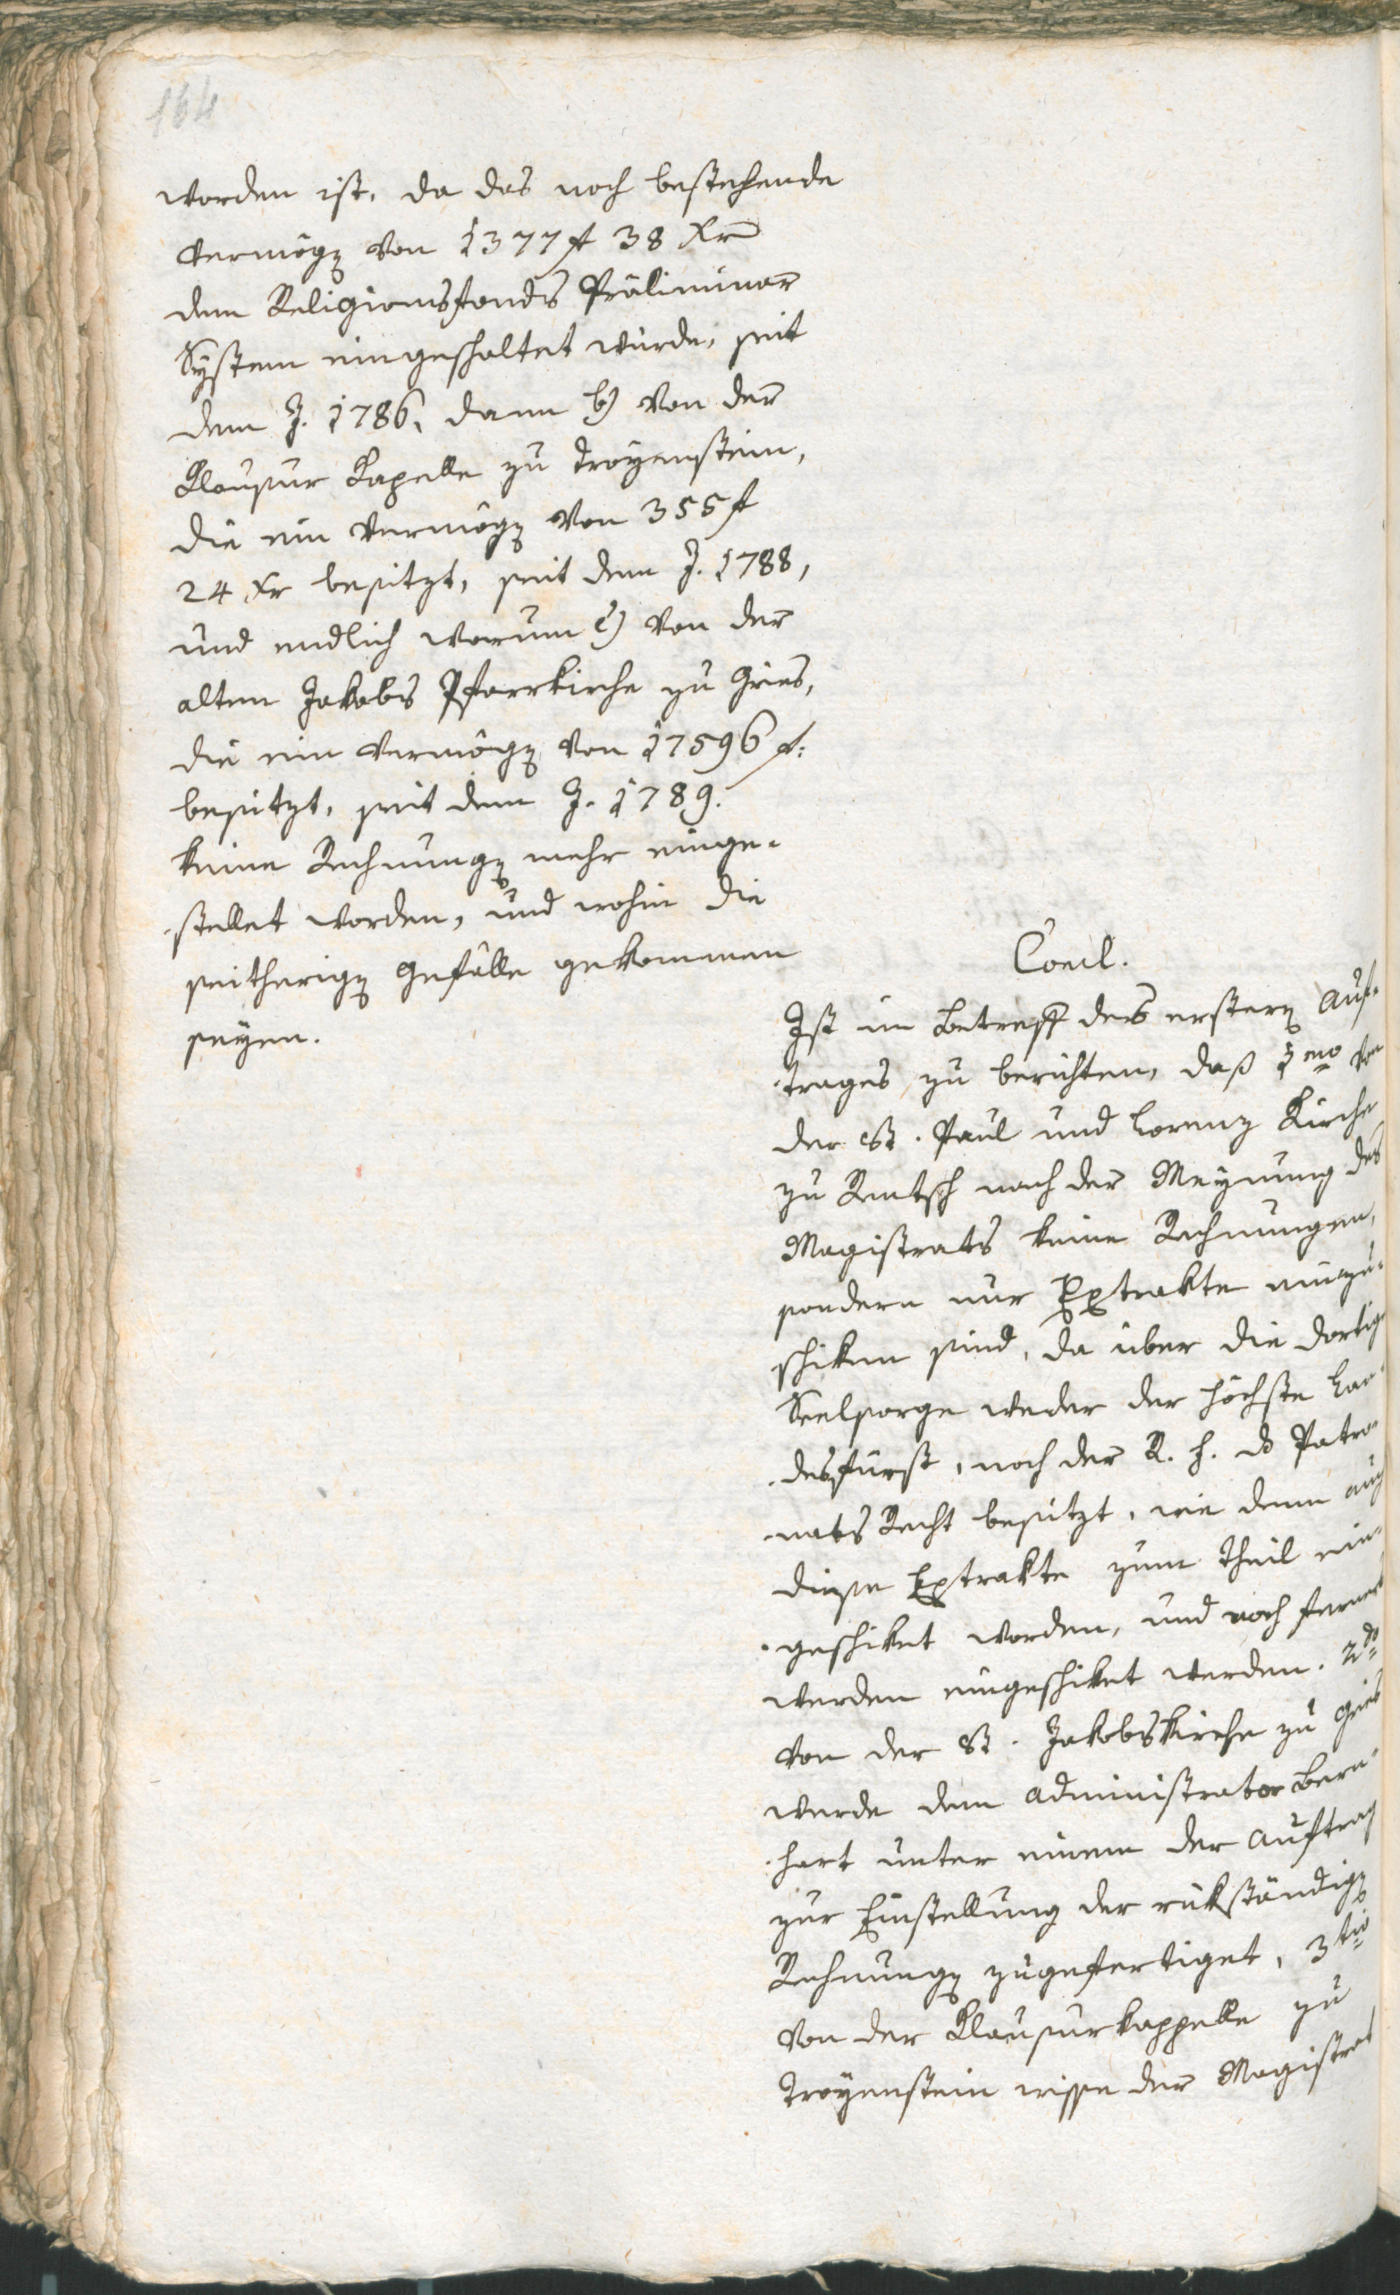 164
worden ist, da das noch bestehende
Vermögen von 1377 f 38 Xr
dem Religionsfonds Präliminar
System eingeschaltet wurde, seit
dem J. 1786, dann b) von der
Klausur Kapelle zu Troyenstein,
die ein Vermögen von 355 f
24 Xr besitzt, seit dem J. 1788,
und endlich warum c) von der
alten Jakobs Pfarrkirche zu Gries,
die ein Vermögen von 17596 f:
besitzt, seit dem J. 1789.
keine Rechnungen mehr einge-
stellet worden, und wohin die
seitherigen Gefälle gekommen
seyen.
Concl.
Ist im Betreff des ersteren Auf-
trages zu berichten, daß 1mo von
der St. Paul und Lorenz Kirche
zu Rentsch nach der Meynung des
Magistrats keine Rechnungen,
sondern nur Extrakte einzu-
schiken sind, da über die dortige
Seelsorge weder der höchste Lan-
desfürst, noch der R. f. das Patro-
nats Recht besitzt, wie denn auch
diese Extrakte zum Theil ein-
geschiket worden, und noch ferners
werden eingeschiket werden. 2do
Von der St. Jakobskirche zu Gries
werde dem Administrator Bern-
hart unter einem der Auftrag
zur Einstellung der rükständigen
Rechnungen zugefertiget, 3tio
Von der Klausurkappelle zu
Troyenstein wisse der Magistrat